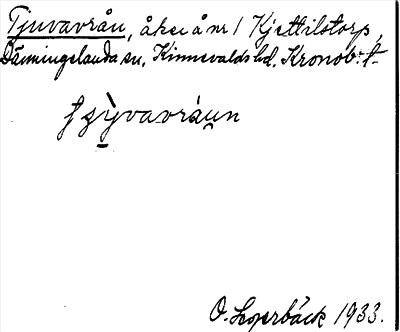 Tjuvavrån, åker å nr 1 Kjettilstorp,
Dänningelanda sn. Kinnevalds hd. Kronob. l.
O. Lagerbäck 1933.